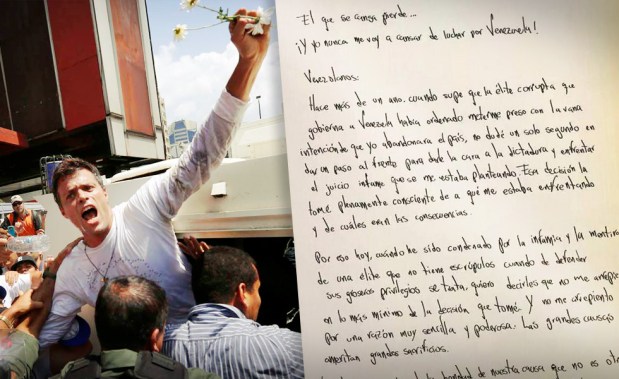 El que se cansa pierde...
¡Y yo nunca me voy a cansar de luchar por Venezuela!
Venezolanos:
Hace más de un ano. cuando supe que la élite corrupta que
gobierna a Venezuela había ordenado meterme preso con la vana
intención de que yo abandonara el país, no dudé un solo segundo en
dar un paso al frente para darle la cara a la dictadura y enfrentar
el juicio infame que se me estaba planteando. Esa decisión la
tome plenamente consciente de a qué me estaba enfrentando
y de cuáles eran las consecuencias.
Por eso hoy, cuando he sido condenado por la infamia y la mentira
de una élite que no tiene escrúpulos cuando de defender
sus groseros privilegios se trata, quiero decirles que no me arrepiento
en lo más mínimo de la decisión que tomé. Y no me arrepiento
por una razón muy sencilla y poderosa: Las grandes causas
ameritan grandes sacrificios.
la bondad de nuestra causa que no es otra